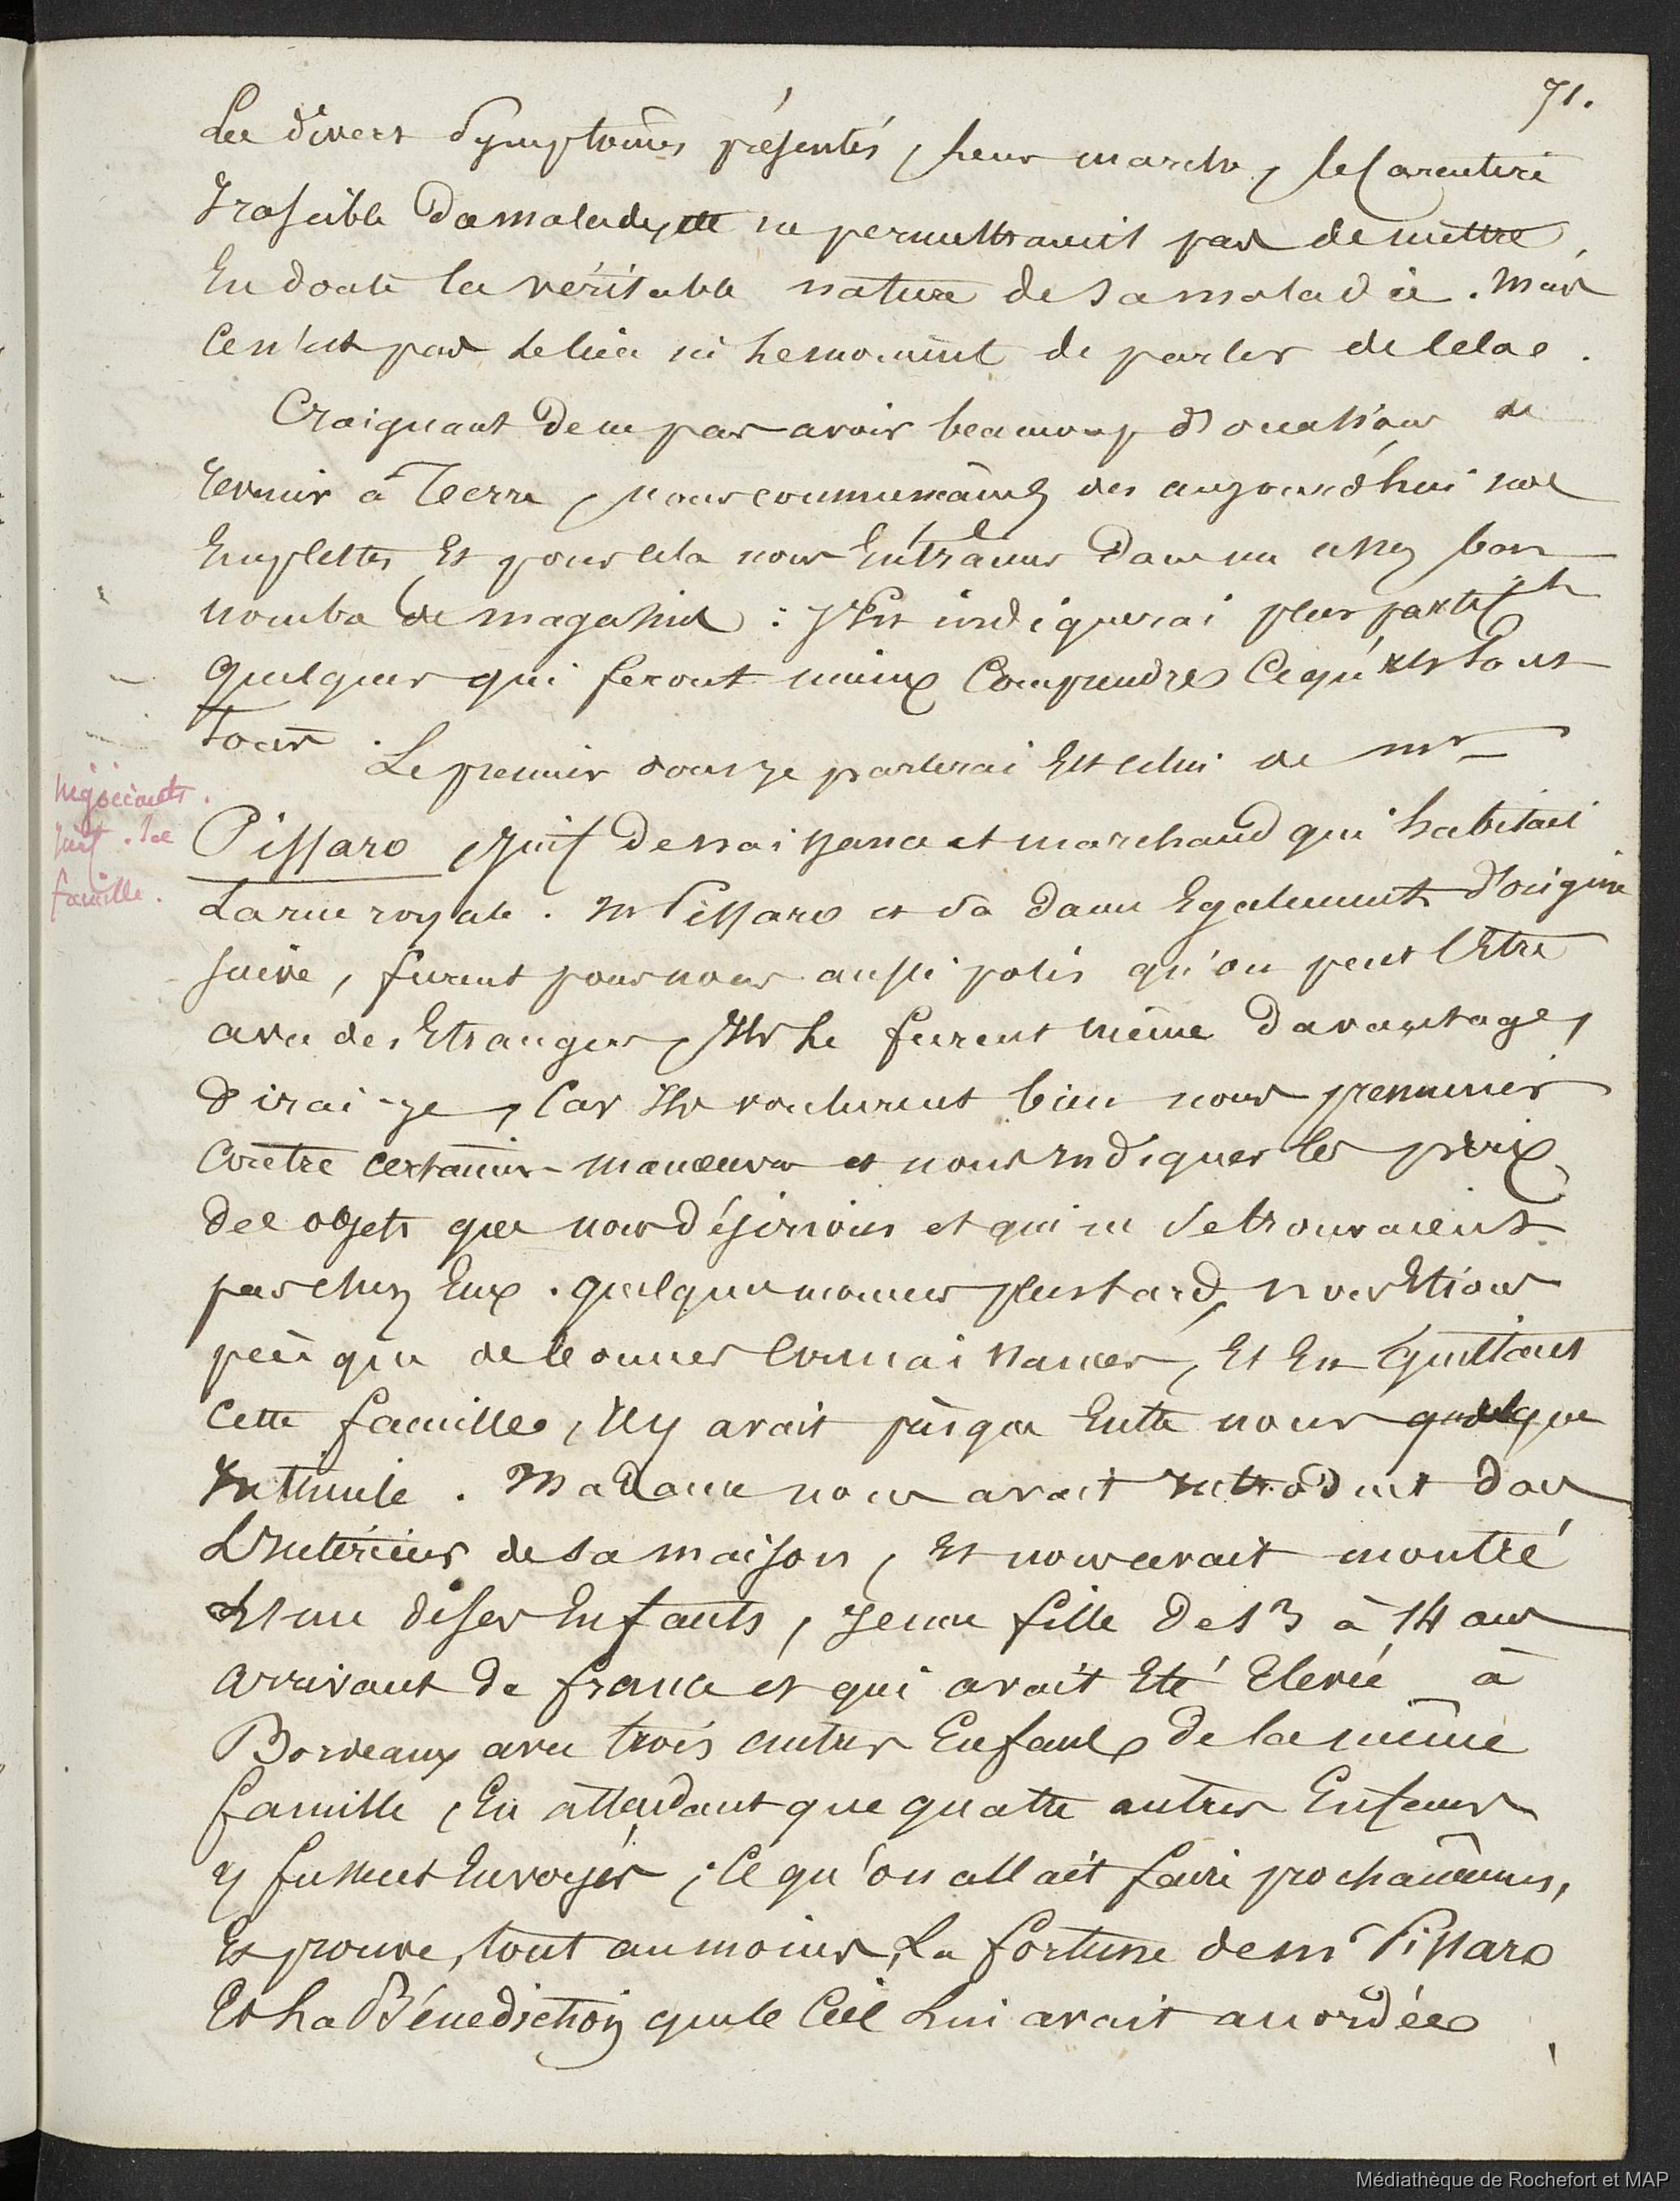 71.
Les divers symptômes présentés, leur marche, le caractère
irascible du malade, ne permettraient pas de mettre
en doute la véritable nature de sa maladie. Mais
ce n'est pas le lieu ni le moment de parler de cela.
Craignant de ne pas avoir beaucoup d'occasions de
revenir à Terre, nous commençâmes dès aujourd'hui nos
Emplettes, Et pour cela nous Entrâmes dans un assez bon
nombre de magasins : J'En indiquerai plus
quelques qui feront mieux comprendre ce qu'ils sont
tous. Le premier dont je parlerai Est celui de Mr
négociants.
juif. Sa
famille.
Pissaro, juif de naissance et marchand qui habitait
La rue royale. Mr Pissaro et sa dame Egalement d'origine
juive, furent pour nous aussi polis qu'on peut l'Etre
avec des Etrangers, Ils Le furent même davantage,
dirai-je, Car Ils voulurent bien nous prémunir
contre certaines manoeuvres et nous Indiquer les prix
des objets que nous désirions et qui ne se trouvaient
pas chez Eux. quelques momens plus tard, nous Etions
presque de bonnes connaissances, Et En quittant
cette famille, Il y avait presque Entre nous quelque
Intimité. Madame nous avait Introduit dans
L'Intérieur de sa maison, Et nous avait montré
L'une de ses Enfants, jeune fille de 13 à 14 ans
arrivant de france et qui avait Eté Elevée à
Bordeaux avec trois autres Enfants de la même
famille, En attendant que quatre autres Enfans
y fussent Envoyés; Ce qu'on allait faire prochainement,
Et prouve, tout au moins, La fortune de Mr Pissaro
Et La Bénédiction que le Ciel Lui avait accordée
Médiathèque de Rochefort et MAP